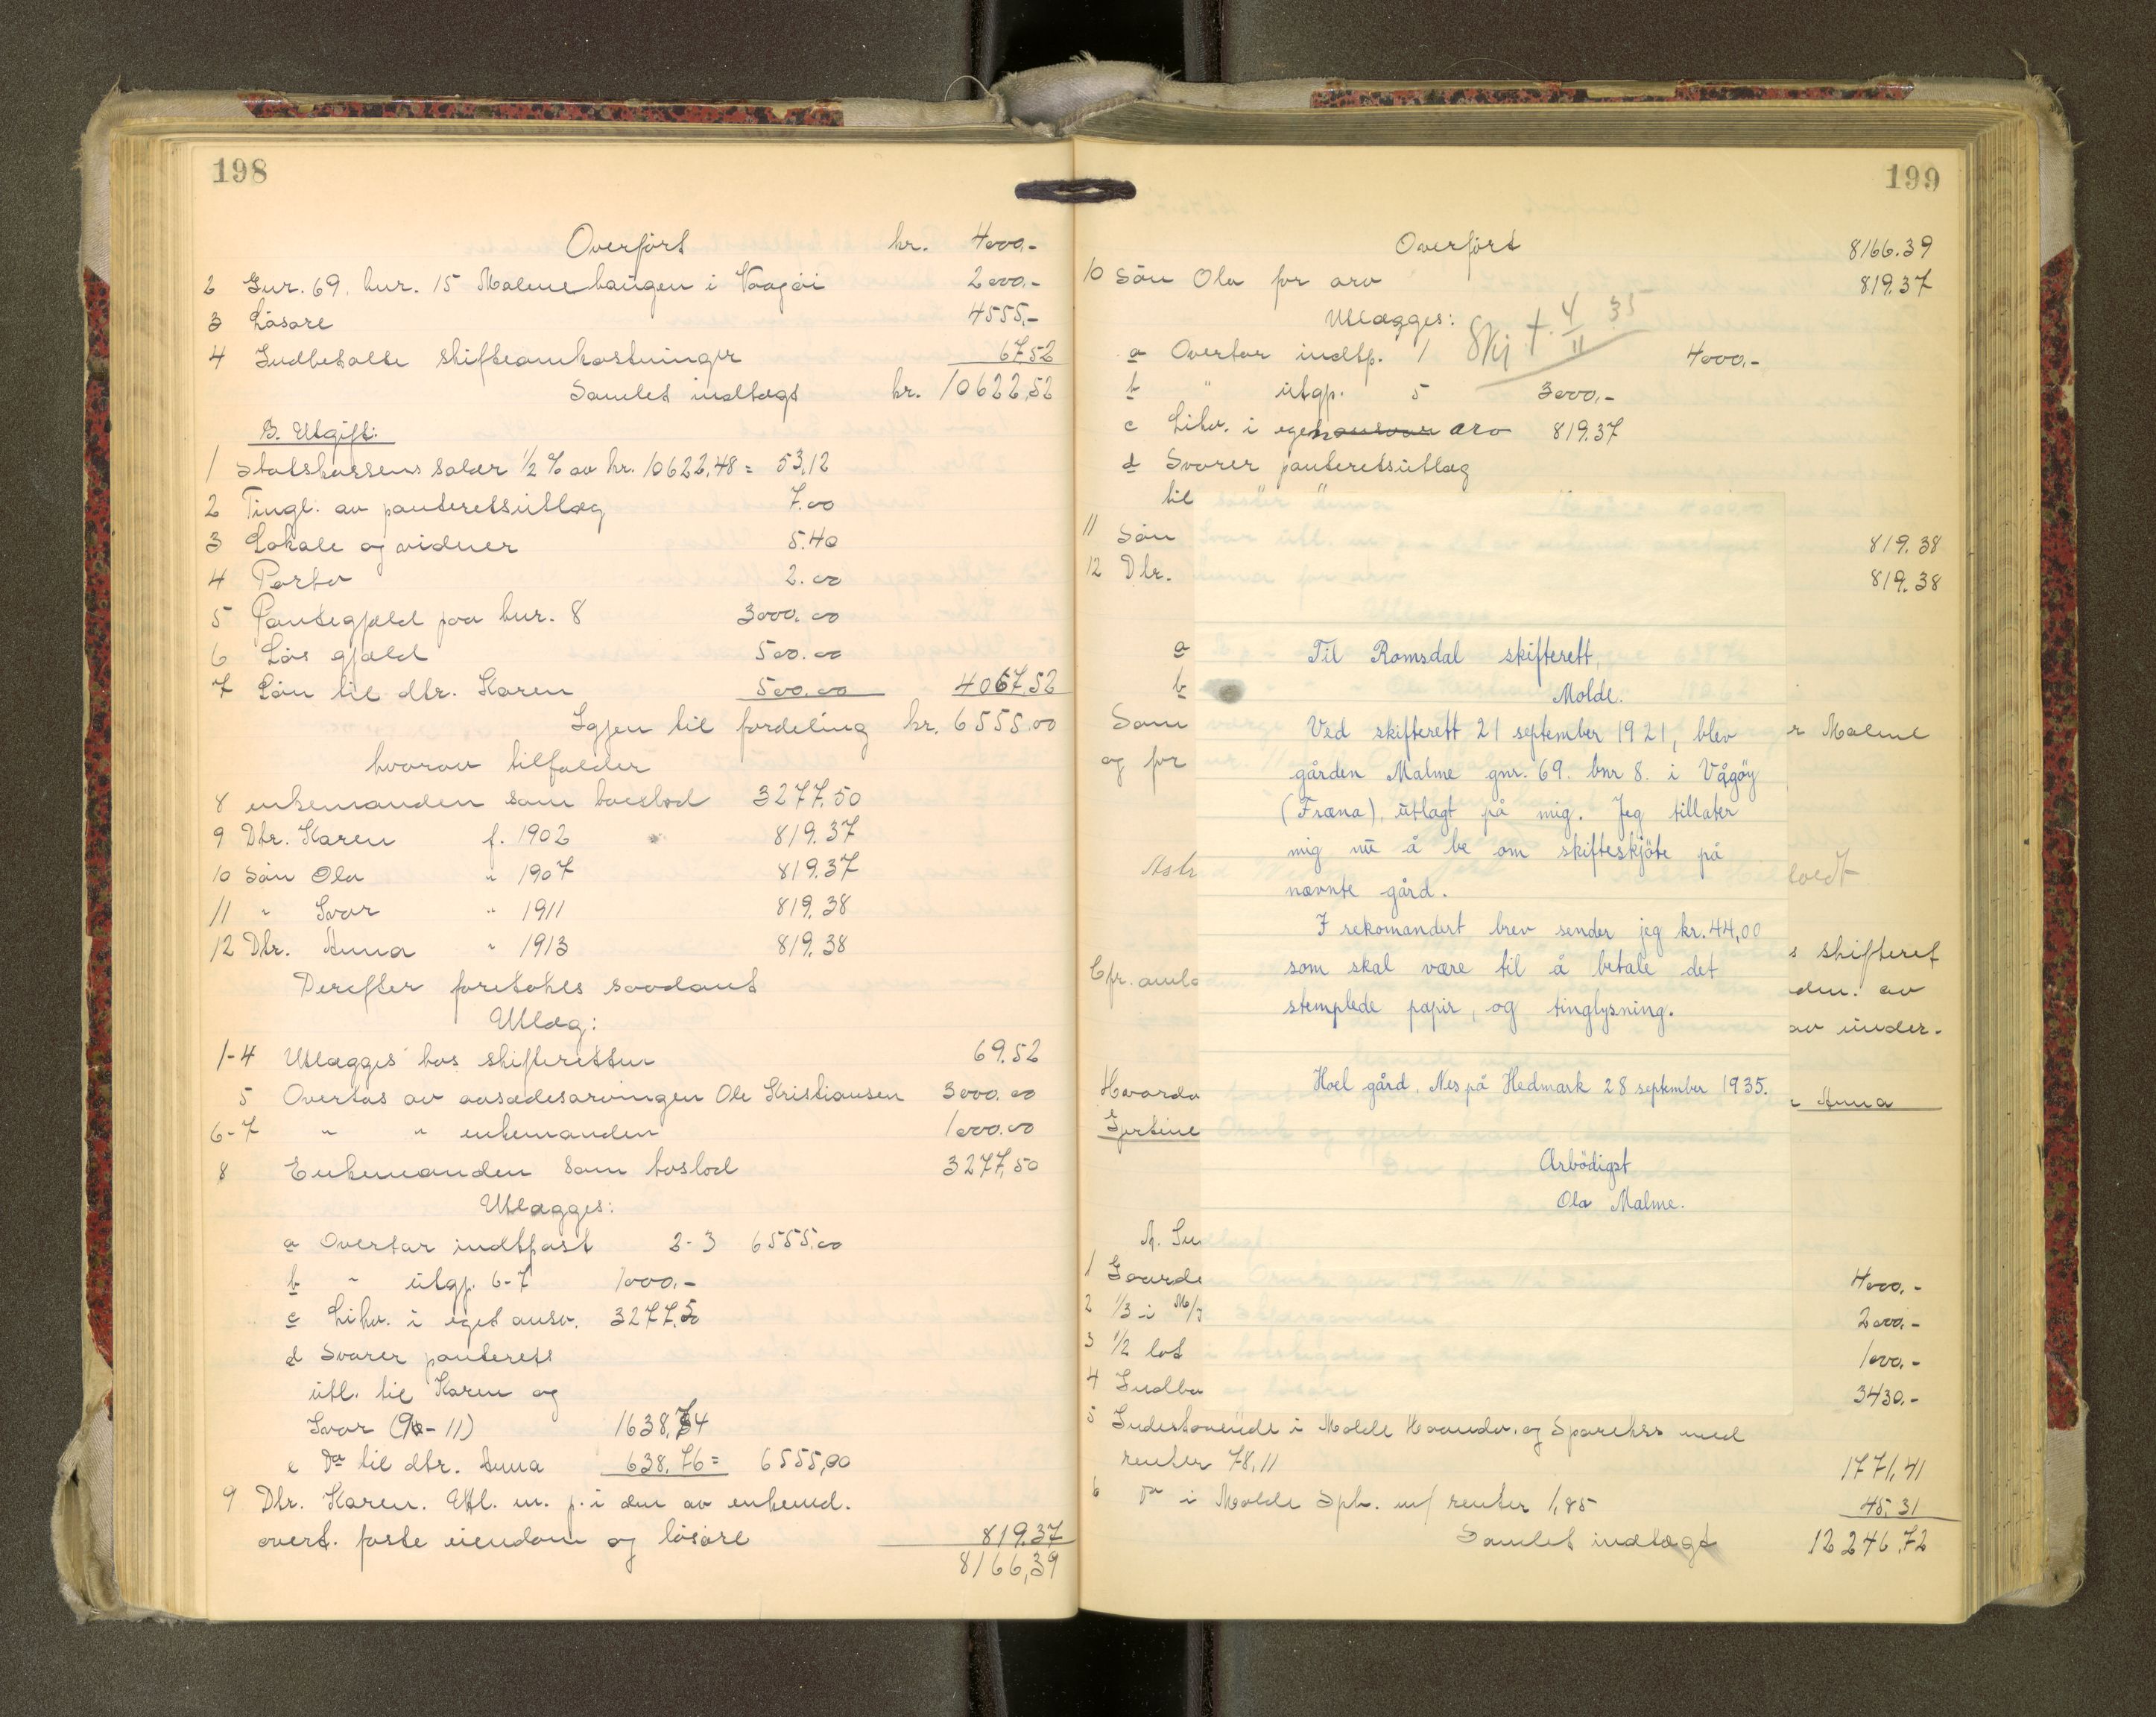 198
Overført kr. 4000.-
2 Gnr. 69. bnr. 15 Malmehaugen i Vaagöi 2000.-
3 Lösöre 4555.-
4 Indbetalte skifteomkostninger 67.52
Samlet indtægt kr. 10622,52
B. Utgift:
1 Statskassens salær 1/2 % av kr. 10622,48 = 53,12
2 Tingl. av panteretsutlæg 7.00
3 Lokale og vidner 5.40
4 Porto 2.00
5 Pantegjæld paa bnr. 8 3000.00
6 Lös gjæld 500.00
7 Lön til dtr. Karen 500.00 4067,52
Igjen til fordeling kr. 6555,00
hvorav tilfalder
8 enkemanden som boeslod 3277,50
9 Dtr. Karen f. 1902 819.37
10 Sön Ola " 1907 819.37
11 " Ivar " 1911 819.38
12 Dtr. Anna " 1913 819.38
Derefter foretokes saadant
Utlæg:
1-4 Utlægges hos skifteretten 69.52
5 Overtas av aasædesarvingen Ole Kristiansen 3000.00
6-7 " " enkemanden 1000.00
8 Enkemanden som boslod 3277,50
Utlægges:
a Overtar indtpost 2-3 6555.00
b " utgp. 6-7 1000.-
c Likv. i eget ansv. 3277.50
d Svarer panterets
utl. til Karen og
Ivar (9-11) 1638,74
e Do til dtr. Anna 638,76 = 6555,00
9 Dtr. Karen. Utl. m. p. i den av enkemd.
overt. faste eiendom og lösöre 819.37
8166,39
199
Overført 8166.39
10 Sön Ola for arv 819.37
Utlægges: Skj t. 4/11 35
a Overtar indtp. 1 4000.-
b " utgp. 5 3000.-
c Likv. i egen ansvar arv 819.37
d Svarer panteretsutlæg
til
11 Sön 819.38
12 Dtr. 819.38
a
b
Som r Malme
og for
Til Romsdal skifterett,
Molde.
Ved skifterett 21 september 1921, blev
gården Malme gnr. 69. bnr 8. i Vågöy
(Fræna), utlagt på mig. Jeg tillater
mig nu å be om skifteskjöte på
nævnte gård.
I rekomandert brev sender jeg kr. 44,00
som skal være til å betale det
stemplede papir, og tinglysning.
Hoel gård, Nes på Hedmark 28 september 1935.
Ærbödigst
Ola Malme.
s skifteret
av
av under-
Anna
1 Gaarde 4000.-
2 1/3 i 2000.-
3 1/2 lot 1000.-
4 Indbo 3430.-
5 Indestaaende i Molde Haandv. og Sparekrs med
renter 78,11 1771,41
6 Do i Molde Spb. m/ renter 1,85 45,31
Samlet indtægt 12246,72